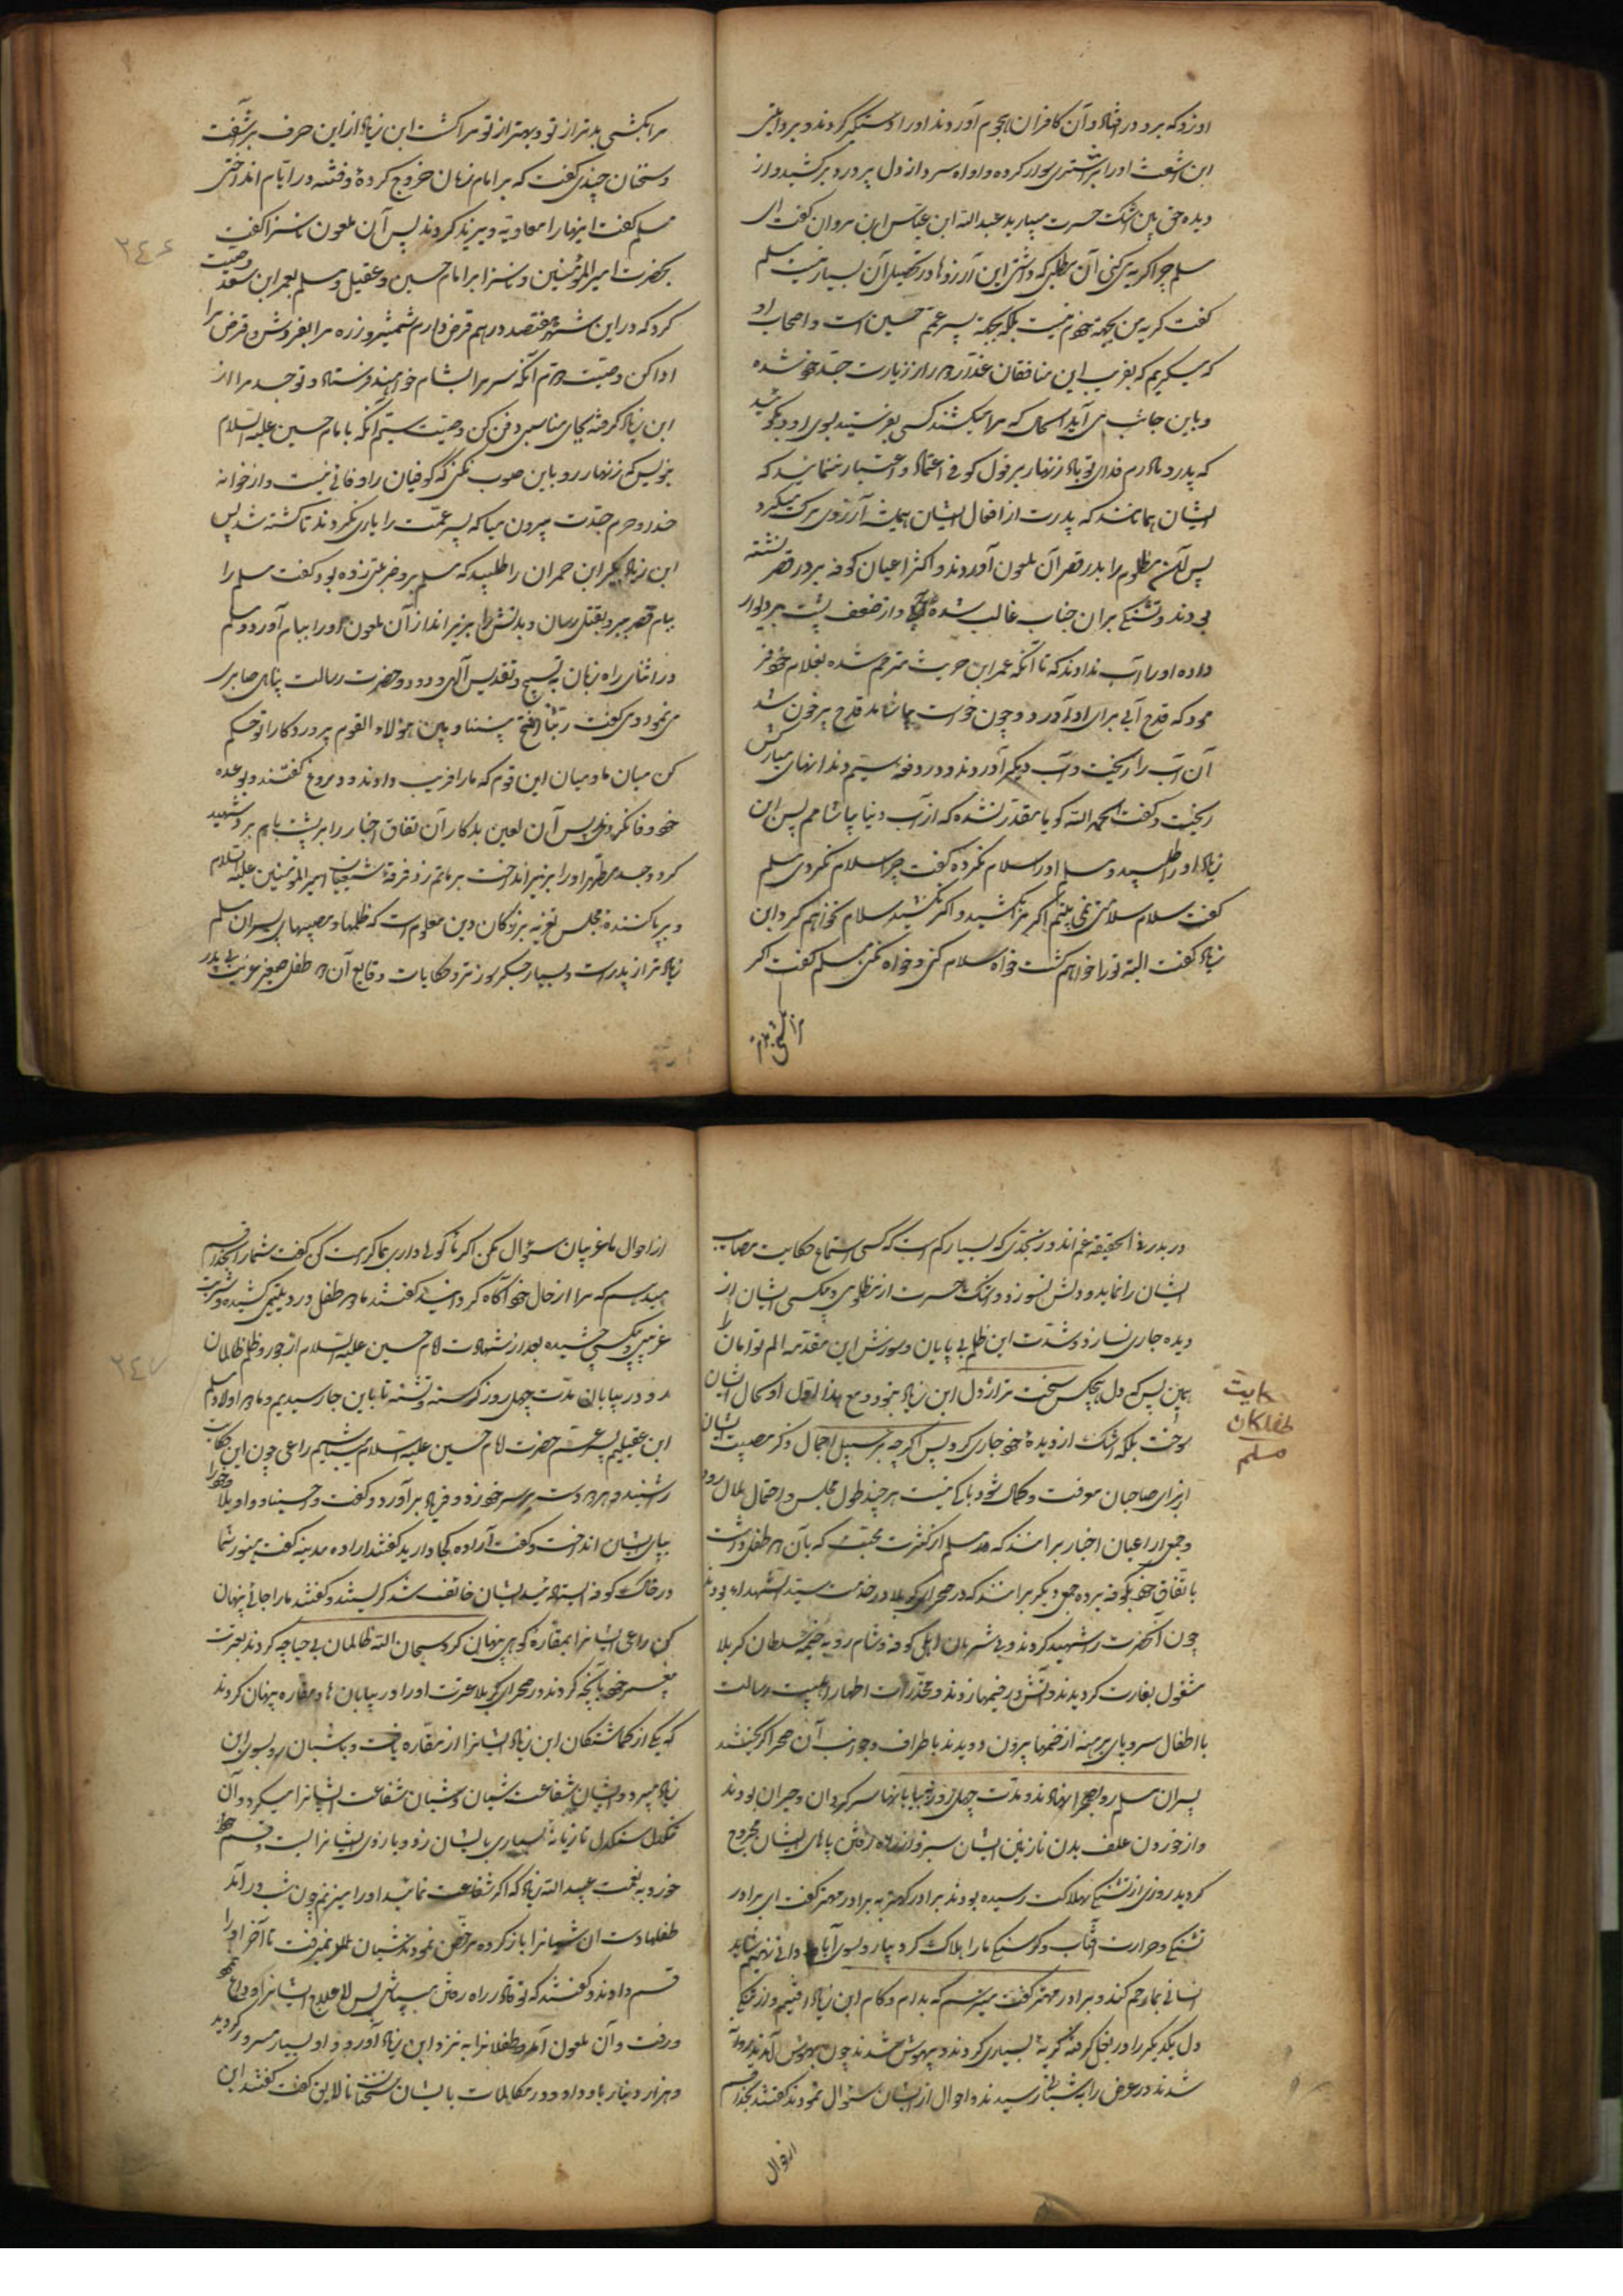 او زد که برو در فتاد و آن کافران هجوم آوردند و او را دستگیر کردند و بروایتی
ابن اشعث او را بر اشتری سوار کرده و او آه سرد از دل پر درد بر کشید و از
دیده حق بین اشک حسرت میبارید عبد الله ابن عباس ابن مروان گفت ای
مسلم چرا گریه میکنی آن مطلبی که داشتی این آرزوها در تحصیل آن بسیار نیست مسلم
گفت گریه من بجهة خودم نیست بلکه بجهة پسر عمم حسین است و اصحاب او
که میگریم که بفریب این منافقان غدار از زیارت جد خود شده
و باین جانب می آید اسحال که مرا میکشند کسی بفرستید بسوی او و بگوئید
که پدر و مادرم فدای تو باد زنهار بر قول کوفی اعتماد و اعتبار ننمائید که
ایشان همانند که پدرت از افعال ایشان همیشه آرزوی مرگ میکرد
پس آن مظلوم را بدر قصر آن ملعون آوردند و اکثر اعیان کوفه بر در قصر نشسته
بودند و تشنگی بر آن جناب غالب شده و از ضعف پشت بر دیوار
داده او را آب ندادند که تا آنکه عمر ابن حریث مترحم شده بغلام خود فر
مود که قدح آبی برای او آورد و چون خواست بیاشامد قدح پر خون شد
آن آب را ریخت و آب دیگر آوردند و در دفعه سیم دندانهای مبارکش
ریخت و گفت الحمد الله گویا مقدر نشده که از آب دنیا بیاشامم پس ابن
زیاد او را طلبید و مسلم او را سلام نکرده گفت چرا سلام نکردی مسلم
گفت سلام سلامتی نمی بینم اگر مرا کشید و اگر نکشید سلام نخواهم کرد ابن
زیاد گفت البته ترا خواهم کشت خواه سلام کنی و خواه نکنی مسلم گفت اگر
مرا بکشی بدتر
مرا بکشی بدتر از تو و بهتر از تو مرا کشت ابن زیاد از این حرف برآشفت
و سخنان چندی گفت که بر امام زمان خروج کردهٔ و فتنه در ایام انداختی
مسلم گفت اینها را معاویه و یزید کردند پس آن ملعون ناسزا گفت
بحضرت امیر المؤمنین و ناسزا بر امام حسین و عقیل و مسلم بعمر ابن سعد وصیت
کرد که در این شهر هفتصد درهم قرض دارم شمشیر و زره مرا بفروش و قرض مرا
ادا کن وصیت دویم آنکه سر مرا بشام خواهند فرستاد و تو جسد مرا از
ابن زیاد گرفته بجای مناسبی دفن کن وصیت سیم آنکه بامام حسین علیه السلام
بنویس که زنهار رو باین صوب نکنی که کوفیان را وفائی نیست و از خوانه
خدا و حرم جدت بیرون میا که پسر عمت را یاری نکردند تا کشته شد پس
ابن زیاد بکیر ابن حمران را طلبید که مسلم برو ضربتی زده بود گفت مسلم را
ببام قصر ببر و بقتل رسان و بدنش را بزیر انداز آن ملعون او را ببام آورد و مسلم
در اثنای راه زبان به تسبیح و تقدیس الهی و درود حضرت رسالت پناهی جاری
می نمود و می گفت ربنا افتح بیننا و بین هؤلاء القوم پروردگارا تو حکم
کن میان ما و میان این قوم که ما را فریب دادند و دروغ گفتند و بوعده
خود وفا نکردند پس آن لعین بدکار آن نقاق اخبار را بر پشت بام برد و شهید
کرد و جسد مطهر او را بزیر انداخت بر ماتم زد فرقهٔ شیعیان امیر المؤمنین علیه السلام
و بر پا کننده مجلس تعزیه بزرگان دین معلوم است که ظلمها و مصیبتها بر پسران مسلم
زیادتر از پدر است و بسیار جگرسوزتر و حکایات وقایع آن دو طفل صغیر غریب بی پدر
۲۴۶
در بدر فی الحقیقه غم اندوز بحدی که بسیار کم است که کسی استماع حکایت مصایب
ایشان را نماید و دلش نسوزد و اشک حسرت از مظلومی و بیکسی ایشان از
دیده جاری نسازد و شدت این ظلم بی پایان و سوزش این مقدمه الم توامان را
همین بس که دل هیچکس سخت تر از دل ابن زیاد نبود و مع هذا او بحال ایشان
سوخت بلکه اشک از دیدهٔ خود جاری کرد پس اگر چه بر سبیل اجمال ذکر مصیبت ایشان
از برای صاحبان معرفت و کمال شود باکی نیست هر چند طول مجلس و احتمال ملال رود
و جمعی از اعیان اخبار برانند که مسلم از کثرت محبت که بآن دو طفل داشت
باتفاق خود بکوفه برده جمعی دیگر برانند که در صحرای کربلا در خدمت سید الشهداء بودند
چون آنحضرت را شهید کردند و بی شرمان اهل کوفه و شام رو به خیمه سلطان کربلا
مشغول بغارت گردیدند و آتش در خیمها زدند و مخدرات اطهار اهلبیت رسالت
با اطفال سر و پای برهنه از خیمها بیرون دویدند باطراف و جوانب آن صحرا گریختند
پسران مسلم رو بصحرا نهادند و مدت چهل روز در بیابانها سرگردان و حیران بودند
و از خوردن علف بدن نازنین ایشان سبز و از راه رفتن پاهای ایشان مجروح
گردید روزی از تشنگی بهلاکت رسیده بودند برادر کهتر به برادر مهتر گفت ای برادر
تشنگی و حرارت آفتاب و گرسنگی ما را هلاک کرد بیا رو بسوی آبادانی نهیم شاید
انسانی بما رحم کند و برادر مهتر گفت میترسم که بدام و کام ابن زیاد افتیم و از تنگی
دل یکدیگر را در بغل گرفته گریهٔ بسیاری کردند و بیهوش شدند چون بهوش آمدند روانه
شدند در عرض راه بشبانی رسیدند و احوال از ایشان سؤال نمودند گفتند بخدا قسم
از احوال
حکایت
طفلکان
مسلم
از احوال ما غریبان سؤال مکن اگر نان گوله داری بما کرامت کن گفت شما را بخدا قسم
میدهم که مرا از حال خود آگاه گردانید گفتند ما دو طفل درد یتیمی کشیده و شربت
غریبی و بیکسی چشیده بعد از شهادت امام حسین علیه السلام از جور و ظلم ظالمان
رو در بیابان مدت چهل روز گرسنه و تشنه تا باین جا رسیدیم و ما دو اولاد مسلم
ابن عقیلیم پسر عم حضرت امام حسین علیه السلام میباشیم راعی چون این حکایت
را شنید و هر دو دست بر سر خود زد و فریاد برآورد و گفت وا حسیناه و اویلا خود را
بپای ایشان انداخت و گفت اراده کجا دارید گفتند اراده مدینه گفت هنوز شما
در خاک کوفه ایستاده اید ایشان خائف شده گریستند و گفتند ما را جائی پنهان
کن راعی ایشانرا بمقاره کوهی پنهانی کرد سبحان الله ظالمان بی حیا چه کردند بعترت
پیغمبر خود آنچه کردند در صحرای کربلا عترت او را در بیابان ها و مقاره پنهان کردند
که یکی از گماشتگان ابن زیاد ایشانرا از مقاره یافت و با شبان رو بسوی ابن
زیاد میبرد و ایشان شفاعت شبان و شبان شفاعت ایشانرا میکرد و آن
سنگدل تازیانهٔ بسیاری بایشان زد و بازوی ایشانرا بست و قسم
خورد به نعمت عبید الله زیاد که اگر شفاعت نمائید او را میزنم چون شب در آمد
طفلها دست آن شبانرا باز کرده مرخص نمودند شبان نمیرفت تا آخر او را
قسم دادند و گفتند که تو قادر راه رفتن میباشی پس لاعلاج ایشانرا وداع نمود
و رفت و آن ملعون آمد و طفلانرا به نزد ابن زیاد آورد و او بسیار مسرور گردید
و هزار دینار باو داد و در مکالمات با ایشان سخنها نالایق گفت گفتند ابن
۲۴۷